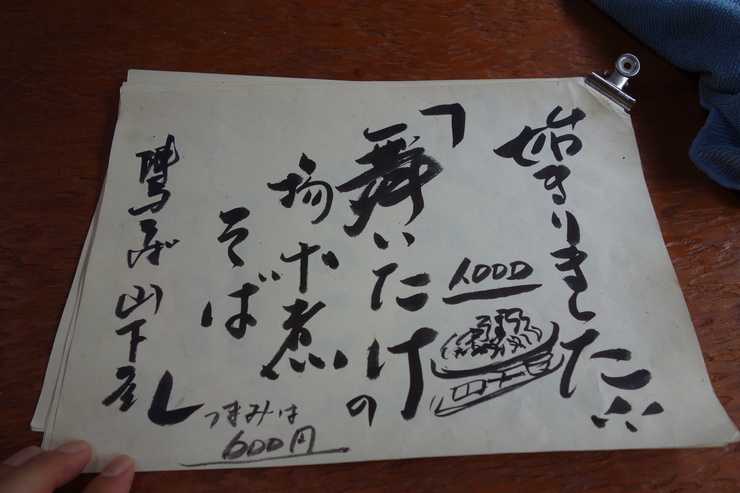 始まりました
1000
「舞いたけの
煮
そば」
つまみは
600円
山下